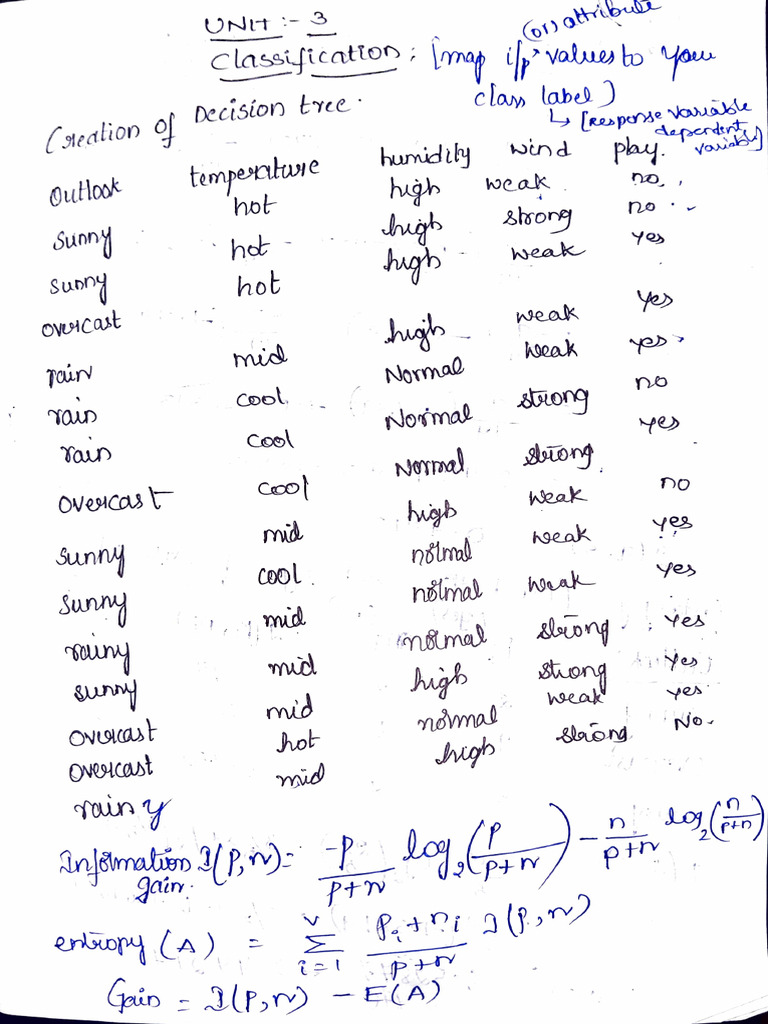 UNIT :- 3
(or) attribute
Classification : [map i/p values to your
class label]
↳ [Response variable
dependent
variable]
Creation of Decision tree.
Outlook temperature humidity wind play.
Sunny hot high weak no
Sunny hot high strong no
overcast hot high weak yes
rain mid high weak yes
rain cool Normal weak yes
rain cool Normal strong no
overcast cool Normal strong yes
sunny mid high weak no
sunny cool normal weak yes
rainy mid normal weak yes
sunny mid normal strong yes
overcast mid high strong yes
overcast hot normal weak yes
rainy mid high strong No.
Information I(P,n) = -P/P+n log₂(P/P+n) - n/P+n log₂(n/P+n)
gain.
entropy (A) = v∑i=1 Pi+ni/P+n I(P,n)
Gain = I(P,n) - E(A)